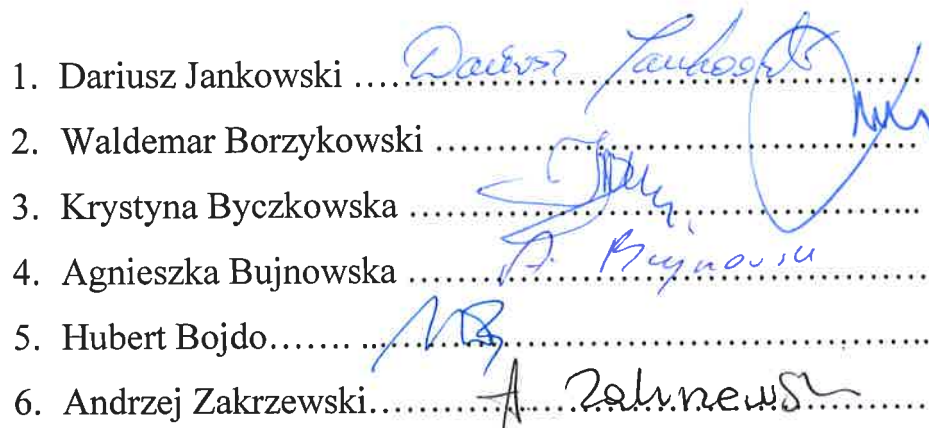 1. Dariusz Jankowski .... Dariusz Jankowski
2. Waldemar Borzykowski ........................................
3. Krystyna Byczkowska ........................................
4. Agnieszka Bujnowska ........ A. Bujnowska
5. Hubert Bojdo....... ........................................
6. Andrzej Zakrzewski............ A Zakrzewski